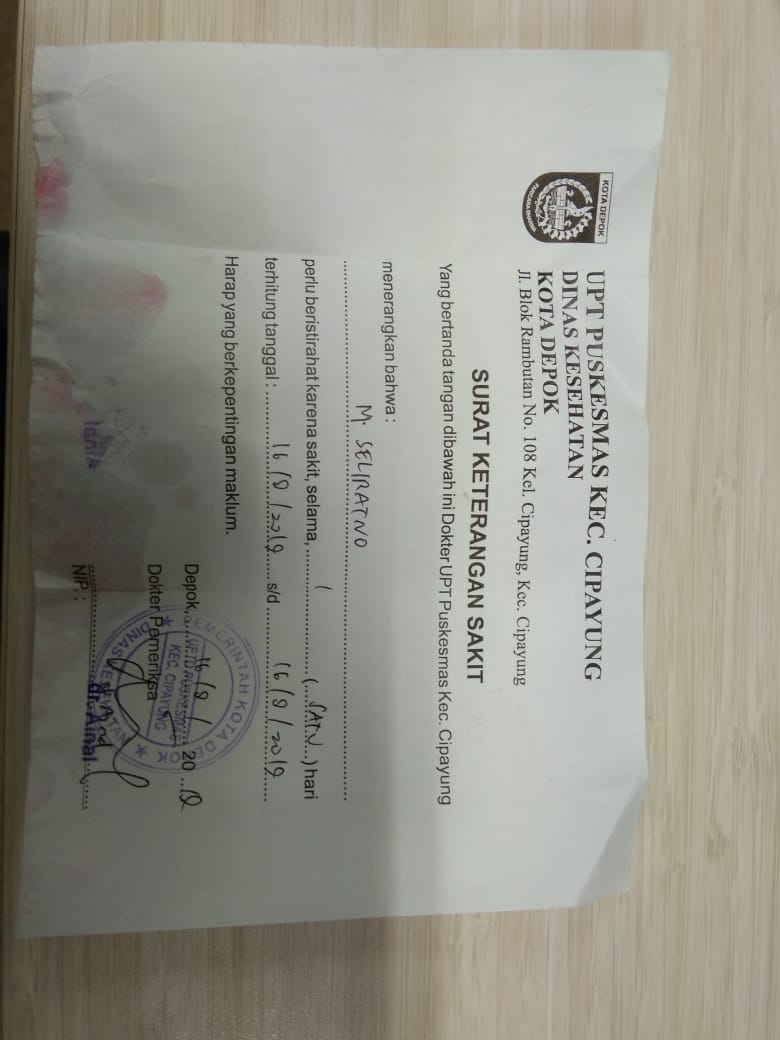 KOTA DEPOK
UPT PUSKESMAS KEC. CIPAYUNG
DINAS KESEHATAN
KOTA DEPOK
Jl. Blok Rambutan No. 108 Kel. Cipayung, Kec. Cipayung
SURAT KETERANGAN SAKIT
Yang bertanda tangan dibawah ini Dokter UPT Puskesmas Kec. Cipayung
menerangkan bahwa :
M.
perlu beristirahat karena sakit, selama, 1 (SATU) hari
terhitung tanggal : s/d
Harap yang berkepentingan maklum.
Depok, 20
Dokter Pemeriksa
PEMERINTAH KOTA DEPOK
UPTD PUSKESMAS
KEC. CIPAYUNG
DINAS KESEHATAN
NIP. :